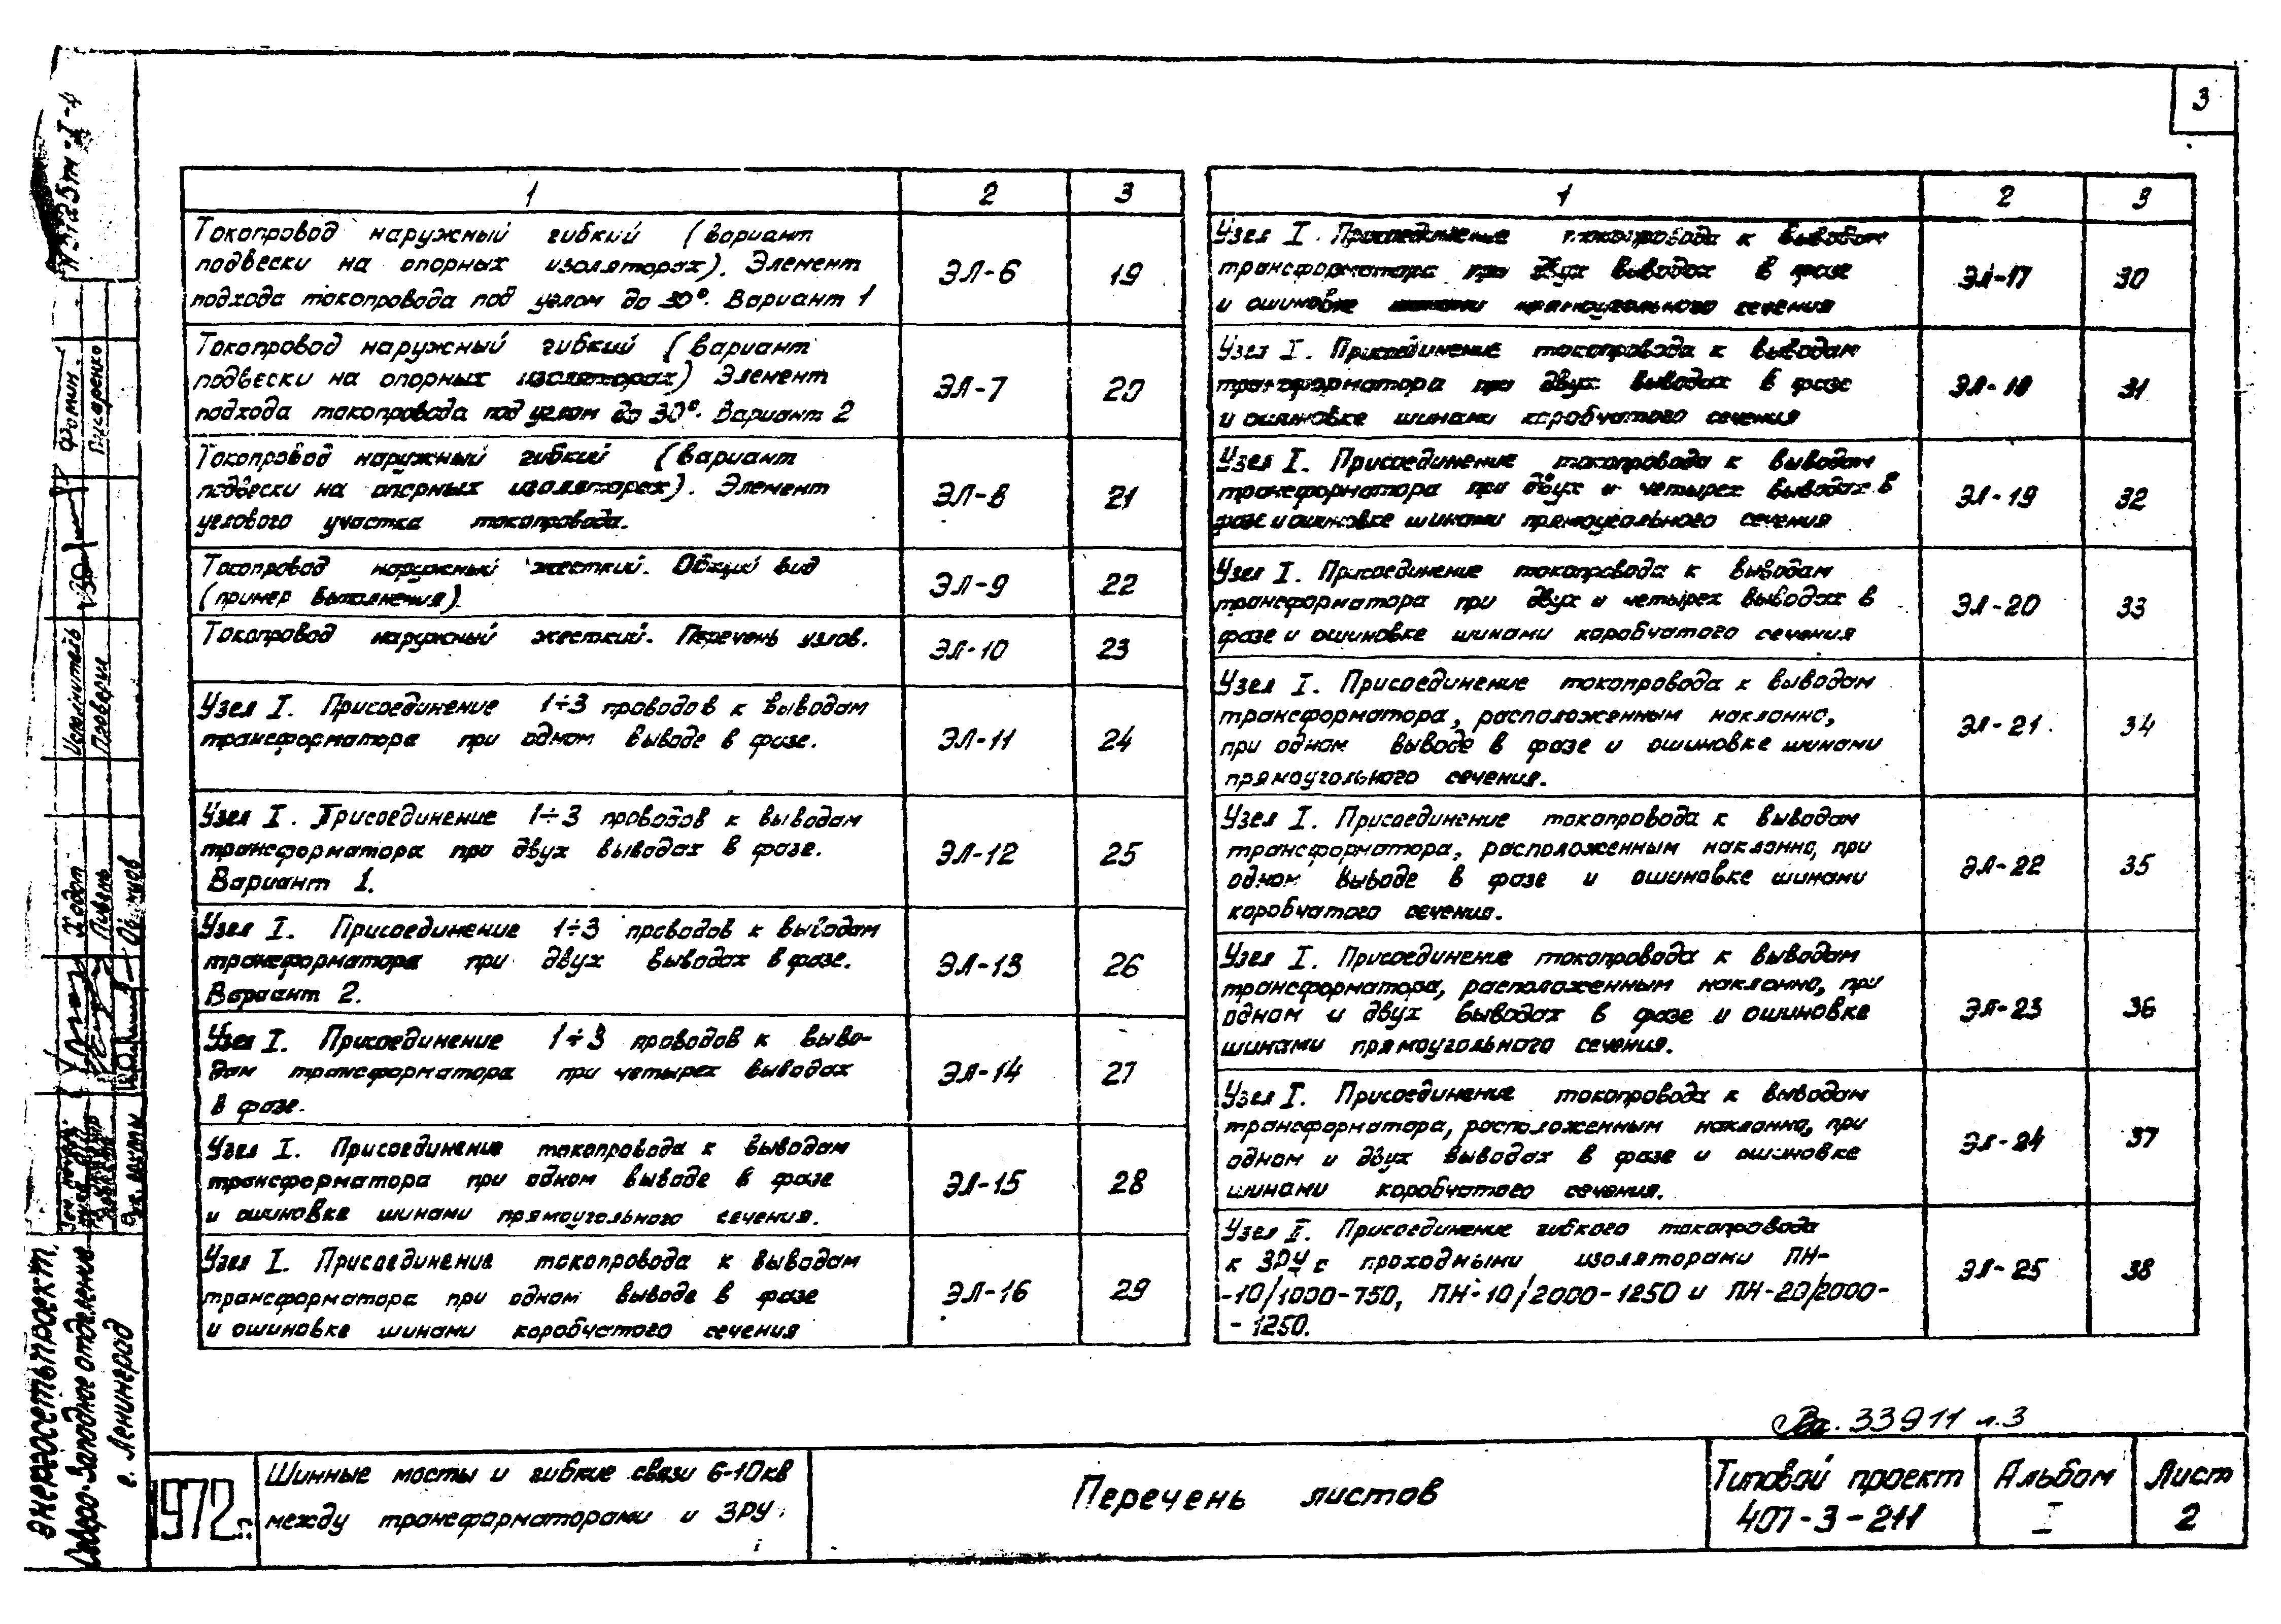 3
1 2 3
Токопровод наружный гибкий (вариант
подвески на опорных изоляторах). Элемент
подхода токопровода под углом до 30°. Вариант 1
ЭЛ-6 19
Токопровод наружный гибкий (вариант
подвески на опорных изоляторах) Элемент
подхода токопровода под углом до 30°. Вариант 2
ЭЛ-7 20
Токопровод наружный гибкий (вариант
подвески на опорных изоляторах). Элемент
углового участка токопровода.
ЭЛ-8 21
Токопровод наружный жесткий. Общий вид
(пример выполнения).
ЭЛ-9 22
Токопровод наружный жесткий. Перечень узлов.
ЭЛ-10 23
Узел I. Присоединение 1÷3 проводов к выводам
трансформатора при одном выводе в фазе.
ЭЛ-11 24
Узел I. Присоединение 1÷3 проводов к выводам
трансформатора при двух выводах в фазе.
Вариант 1.
ЭЛ-12 25
Узел I. Присоединение 1÷3 проводов к выводам
трансформатора при двух выводах в фазе.
Вариант 2.
ЭЛ-13 26
Узел I. Присоединение 1÷3 проводов к выво-
дам трансформатора при четырех выводах
в фазе.
ЭЛ-14 27
Узел I. Присоединение токопровода к выводам
трансформатора при одном выводе в фазе
и ошиновке шинами прямоугольного сечения.
ЭЛ-15 28
Узел I. Присоединение токопровода к выводам
трансформатора при одном выводе в фазе
и ошиновке шинами коробчатого сечения
ЭЛ-16 29
1 2 3
Узел I. Присоединение токопровода к выводам
трансформатора при двух выводах в фазе
и ошиновке шинами прямоугольного сечения
ЭЛ-17 30
Узел I. Присоединение токопровода к выводам
трансформатора при двух выводах в фазе
и ошиновке шинами коробчатого сечения
ЭЛ-18 31
Узел I. Присоединение токопровода к выводам
трансформатора при двух и четырех выводах в
фазе и ошиновке шинами прямоугольного сечения
ЭЛ-19 32
Узел I. Присоединение токопровода к выводам
трансформатора при двух и четырех выводах в
фазе и ошиновке шинами коробчатого сечения
ЭЛ-20 33
Узел I. Присоединение токопровода к выводам
трансформатора, расположенным наклонно,
при одном выводе в фазе и ошиновке шинами
прямоугольного сечения.
ЭЛ-21 34
Узел I. Присоединение токопровода к выводам
трансформатора, расположенным наклонно, при
одном выводе в фазе и ошиновке шинами
коробчатого сечения.
ЭЛ-22 35
Узел I. Присоединение токопровода к выводам
трансформатора, расположенным наклонно, при
одном и двух выводах в фазе и ошиновке
шинами прямоугольного сечения.
ЭЛ-23 36
Узел I. Присоединение токопровода к выводам
трансформатора, расположенным наклонно, при
одном и двух выводах в фазе и ошиновке
шинами коробчатого сечения.
ЭЛ-24 37
Узел II. Присоединение гибкого токопровода
к ЗРУ с проходными изоляторами ПН-
-10/1000-750, ПН-10/2000-1250 и ПН-20/2000-
-1250.
ЭЛ-25 38
33911 л.3
1972г.
Шинные мосты и гибкие связи 6-10кв
между трансформаторами и ЗРУ.
Перечень листов
Типовой проект
407-3-211
Альбом
I
Лист
2
Энергосетьпроект
Северо-Западное отделение
г. Ленинград
Исполнитель
Проверил
Фомин
Писаренко
Ходот